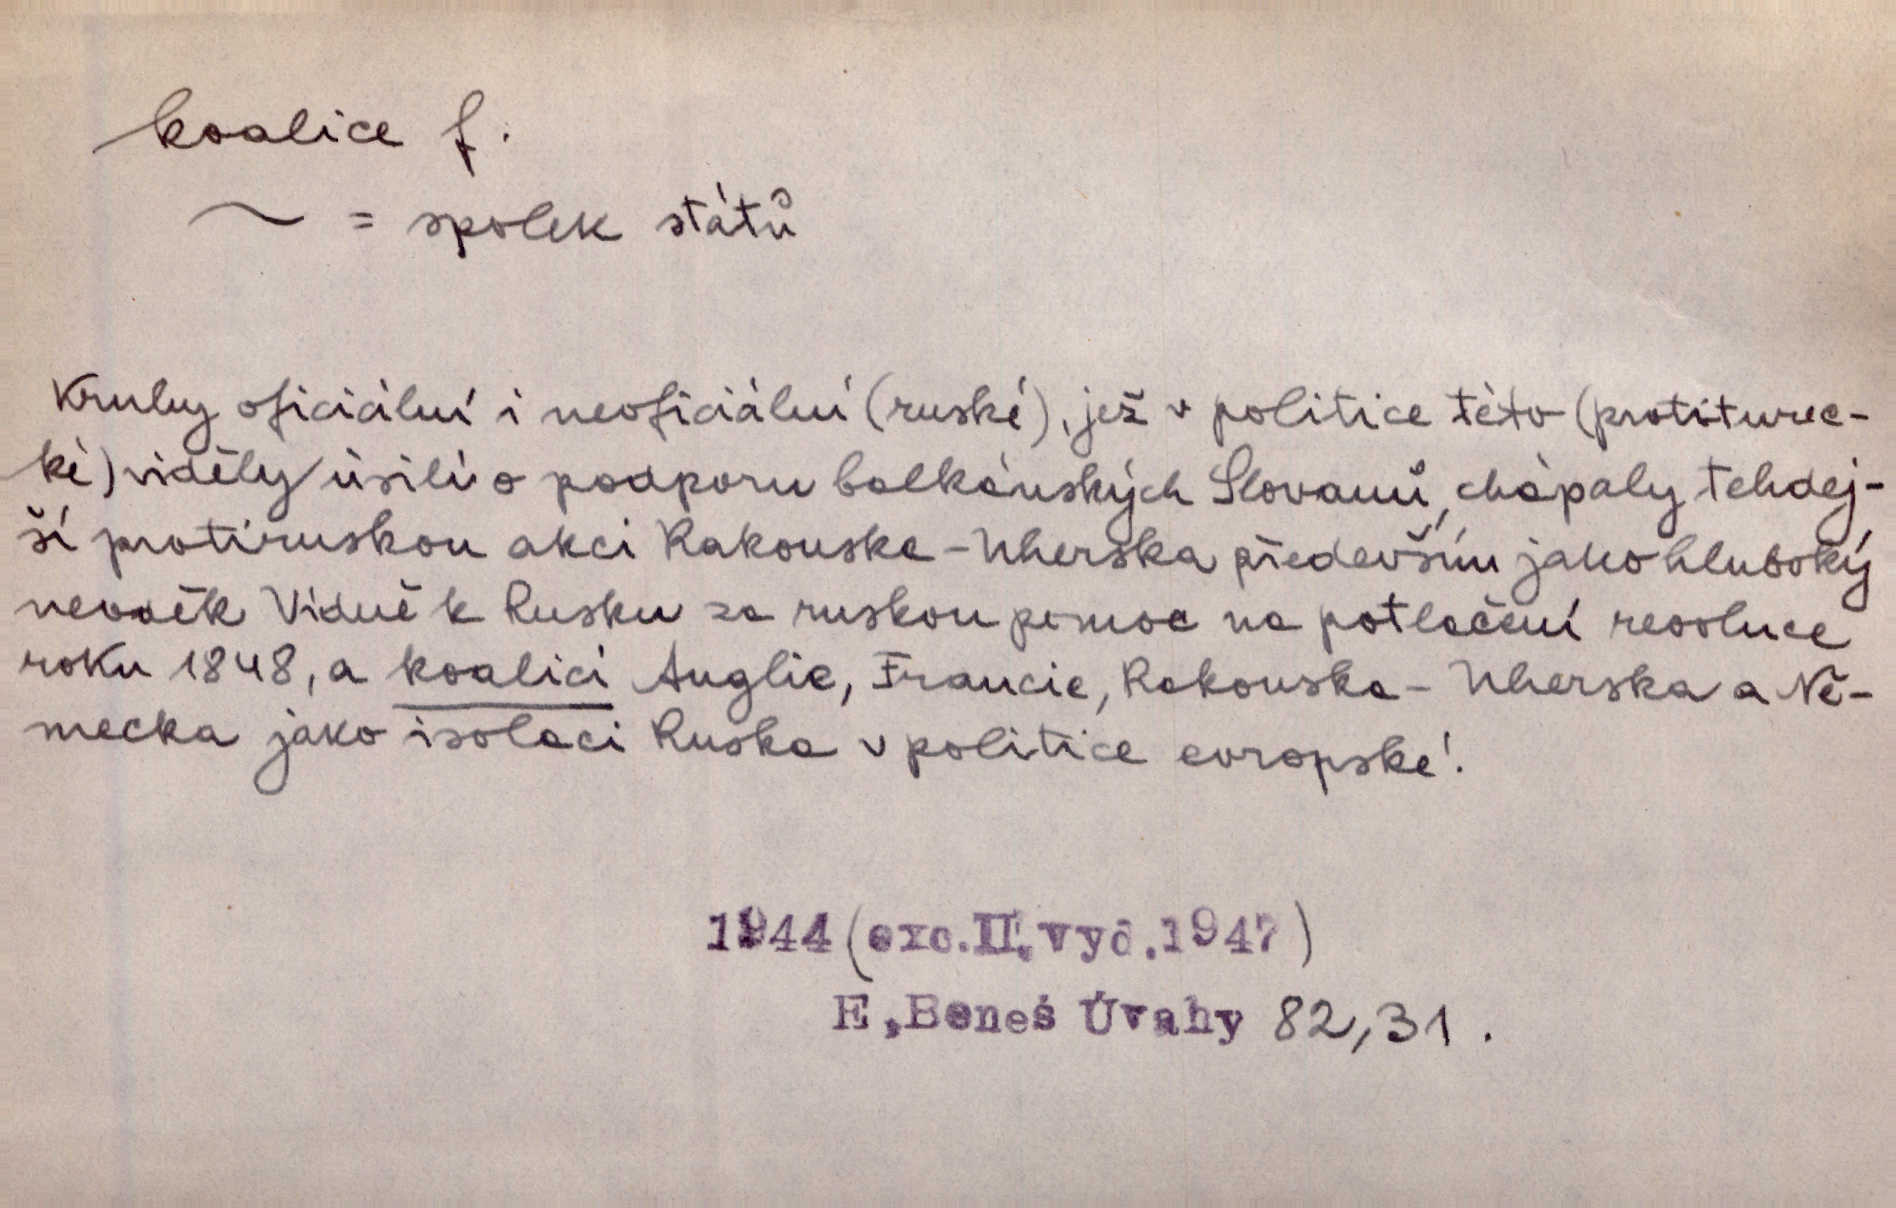 koalice f.
~ = spolek států
Kruhy oficiální i neoficiální (ruské), jež v politice této (protiturec-
ké) viděly úsilí o podporu balkánských Slovanů, chápaly tehdej-
ší protiruskou akci Rakouska-Uherska především jako hluboký
nevděk Vídně k Rusku za ruskou pomoc na potlačení revoluce
roku 1848, a koalici Anglie, Francie, Rakouska-Uherska a Ně-
mecka jako isolaci Ruska v politice evropské.
1944 (exc. II. vyd. 1947)
E. Beneš Úvahy 82,31.